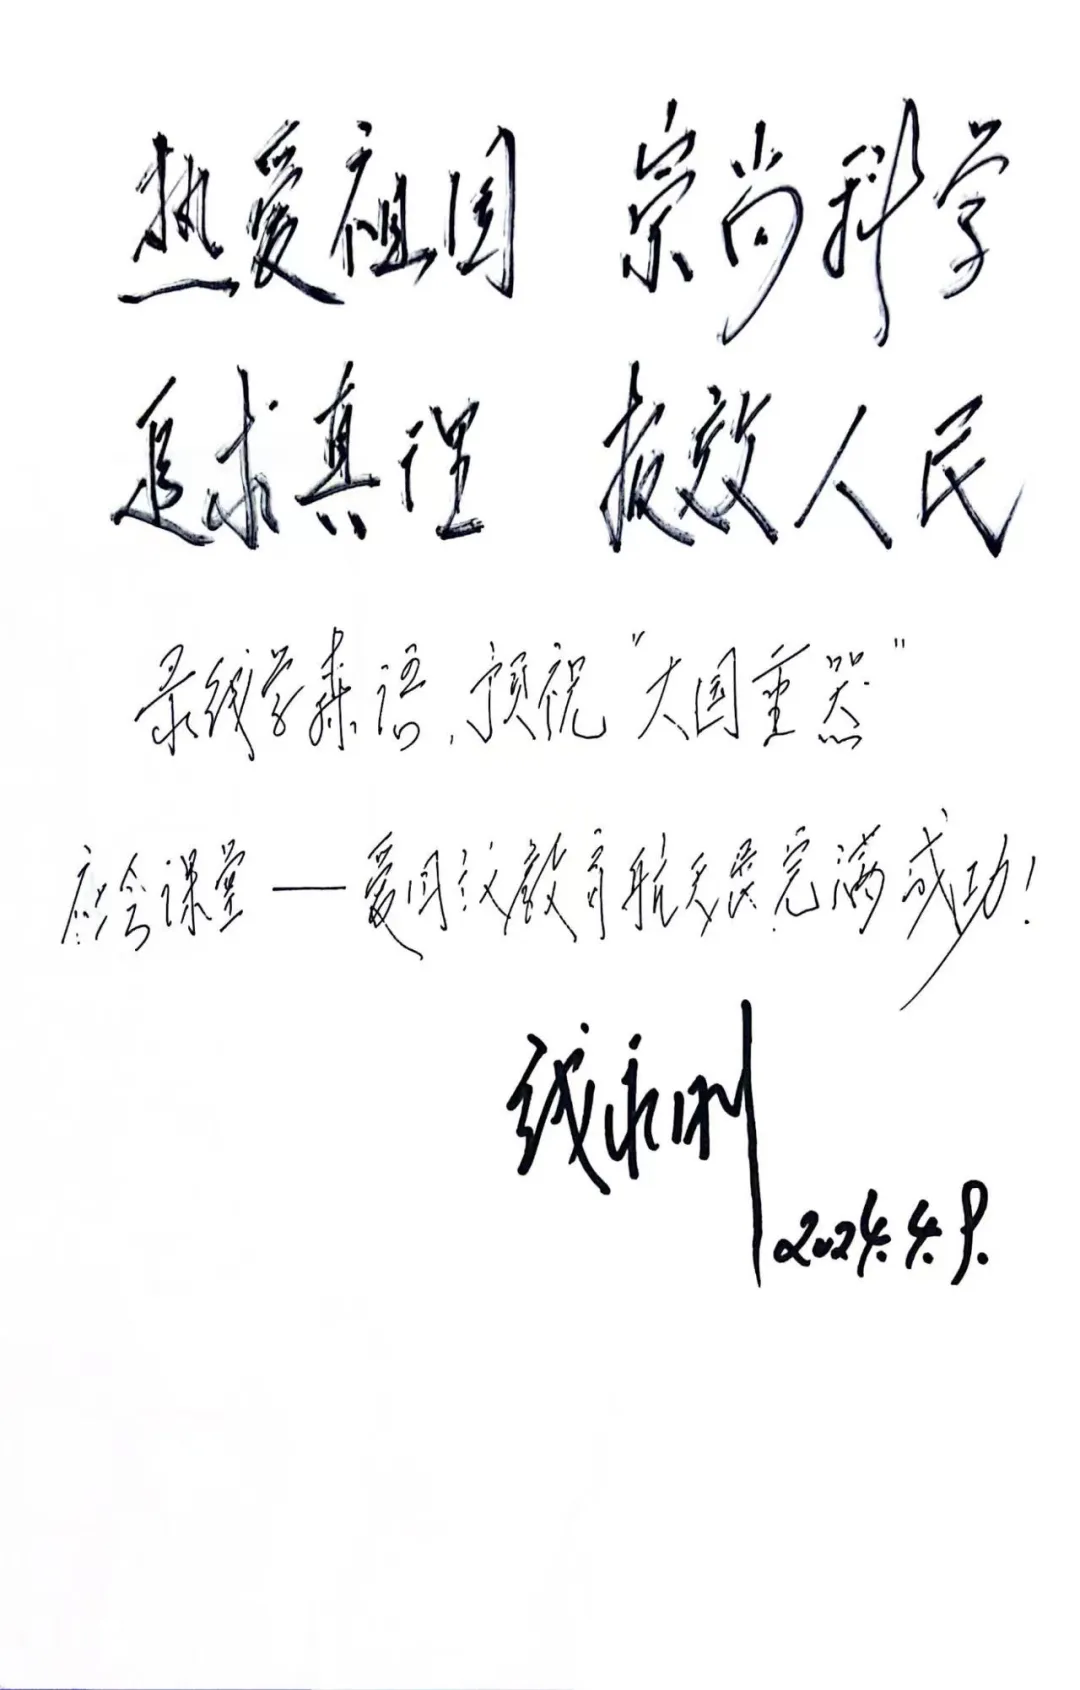 热爱祖国 崇尚科学
追求真理 报效人民
录钱学森语,预祝“大国重器”
会课堂——爱国主义教育航天展完满成功!
钱永刚
2024.4.9.